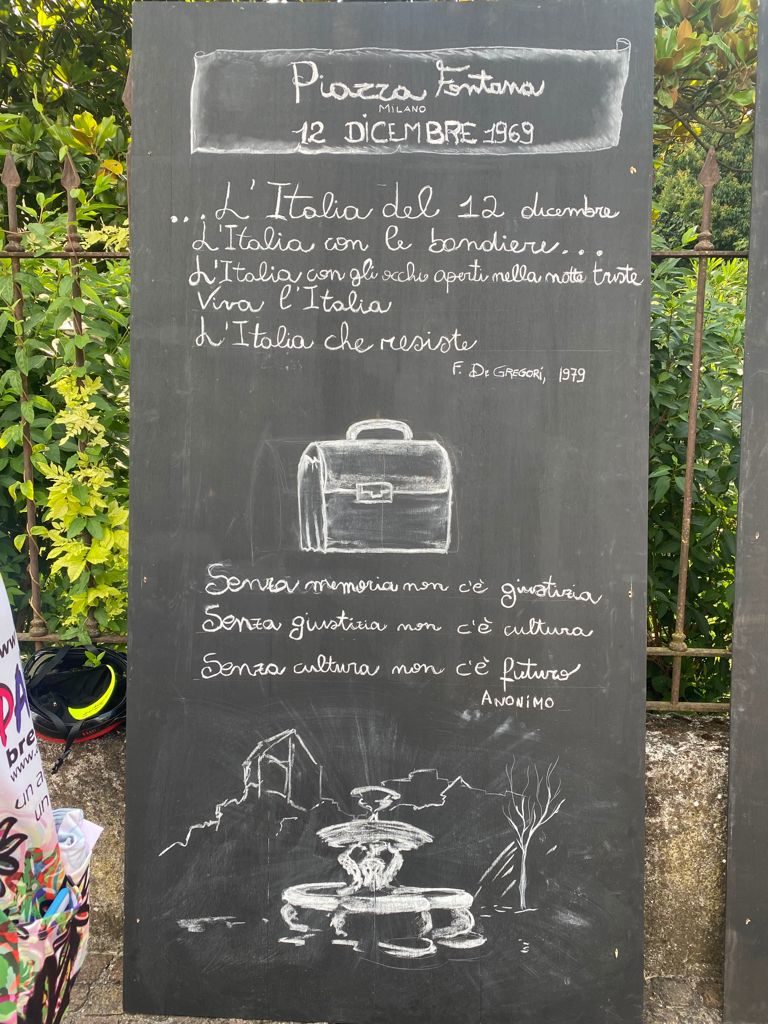 Piazza Fontana
MILANO
12 DICEMBRE 1969
...L'Italia del 12 dicembre
L'Italia con le bandiere...
L'Italia con gli occhi aperti nella notte triste
Viva l'Italia
L'Italia che resiste
F. De GREGORI, 1979
Senza memoria non c'è giustizia
Senza giustizia non c'è cultura
Senza cultura non c'è futuro
ANONIMO
www.
PA
bre
www.
un a
un